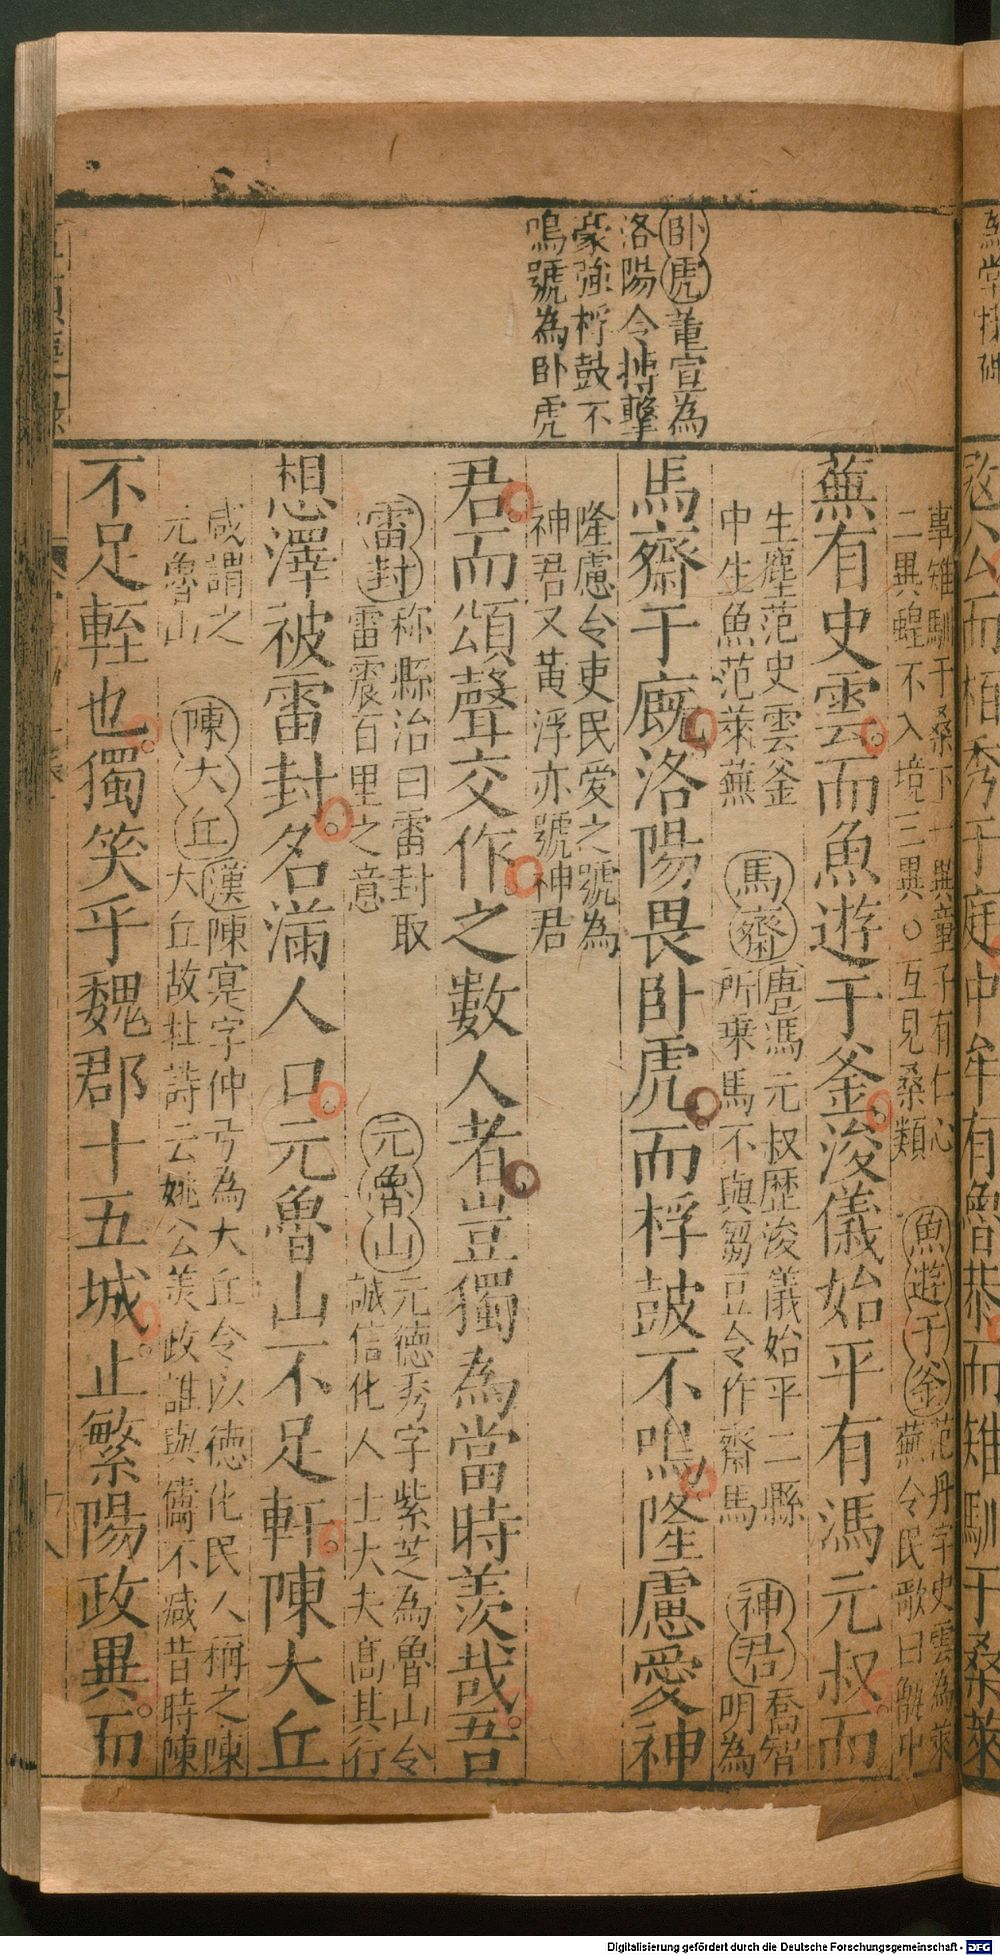 卧虎董宣為
洛陽令搏擊
豪強桴鼓不
鳴號為卧虎
事雉馴于桑下一異童子有仁心
二異蝗不入境三異○互見桑類
魚遊于釜
范丹字史雲為萊
蕪令民歌曰甑中
蕪有史雲而魚遊于釜浚儀始平有馮元叔而
生塵范史雲釜
中生魚范萊蕪
馬齋
唐馮元叔歷浚儀始平二縣
所乗馬不與芻豆令作齋馬
神君
喬智
明為
馬齋于廐洛陽畏卧虎而桴鼓不鳴隆慮愛神
隆慮令吏民愛之號為
神君又黃浮亦號神君
君而頌聲交作之數人者豈獨為當時羨哉吾
雷封
称縣治曰雷封取
雷震百里之意
元魯山
元德秀字紫芝為魯山令
誠信化人士大夫高其行
想澤被雷封名滿人口元魯山不足軒陳大丘
咸謂之
元魯山
陳大丘
漢陳寔字仲弓為大丘令以德化民人稱之陳
大丘故杜詩云姚公美政誰與儔不减昔時陳
不足輊也獨笑乎魏郡十五城止繁陽政異而
Digitalisierung gefördert durch die Deutsche Forschungsgemeinschaft - DFG